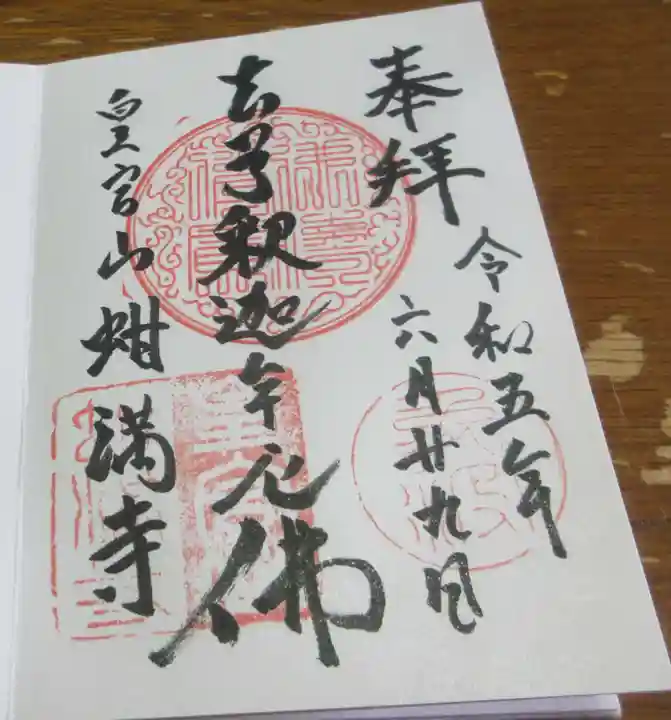 奉拝
令和五年
六月廿九日
本尊釈迦牟尼佛
皇宮山蚶満寺